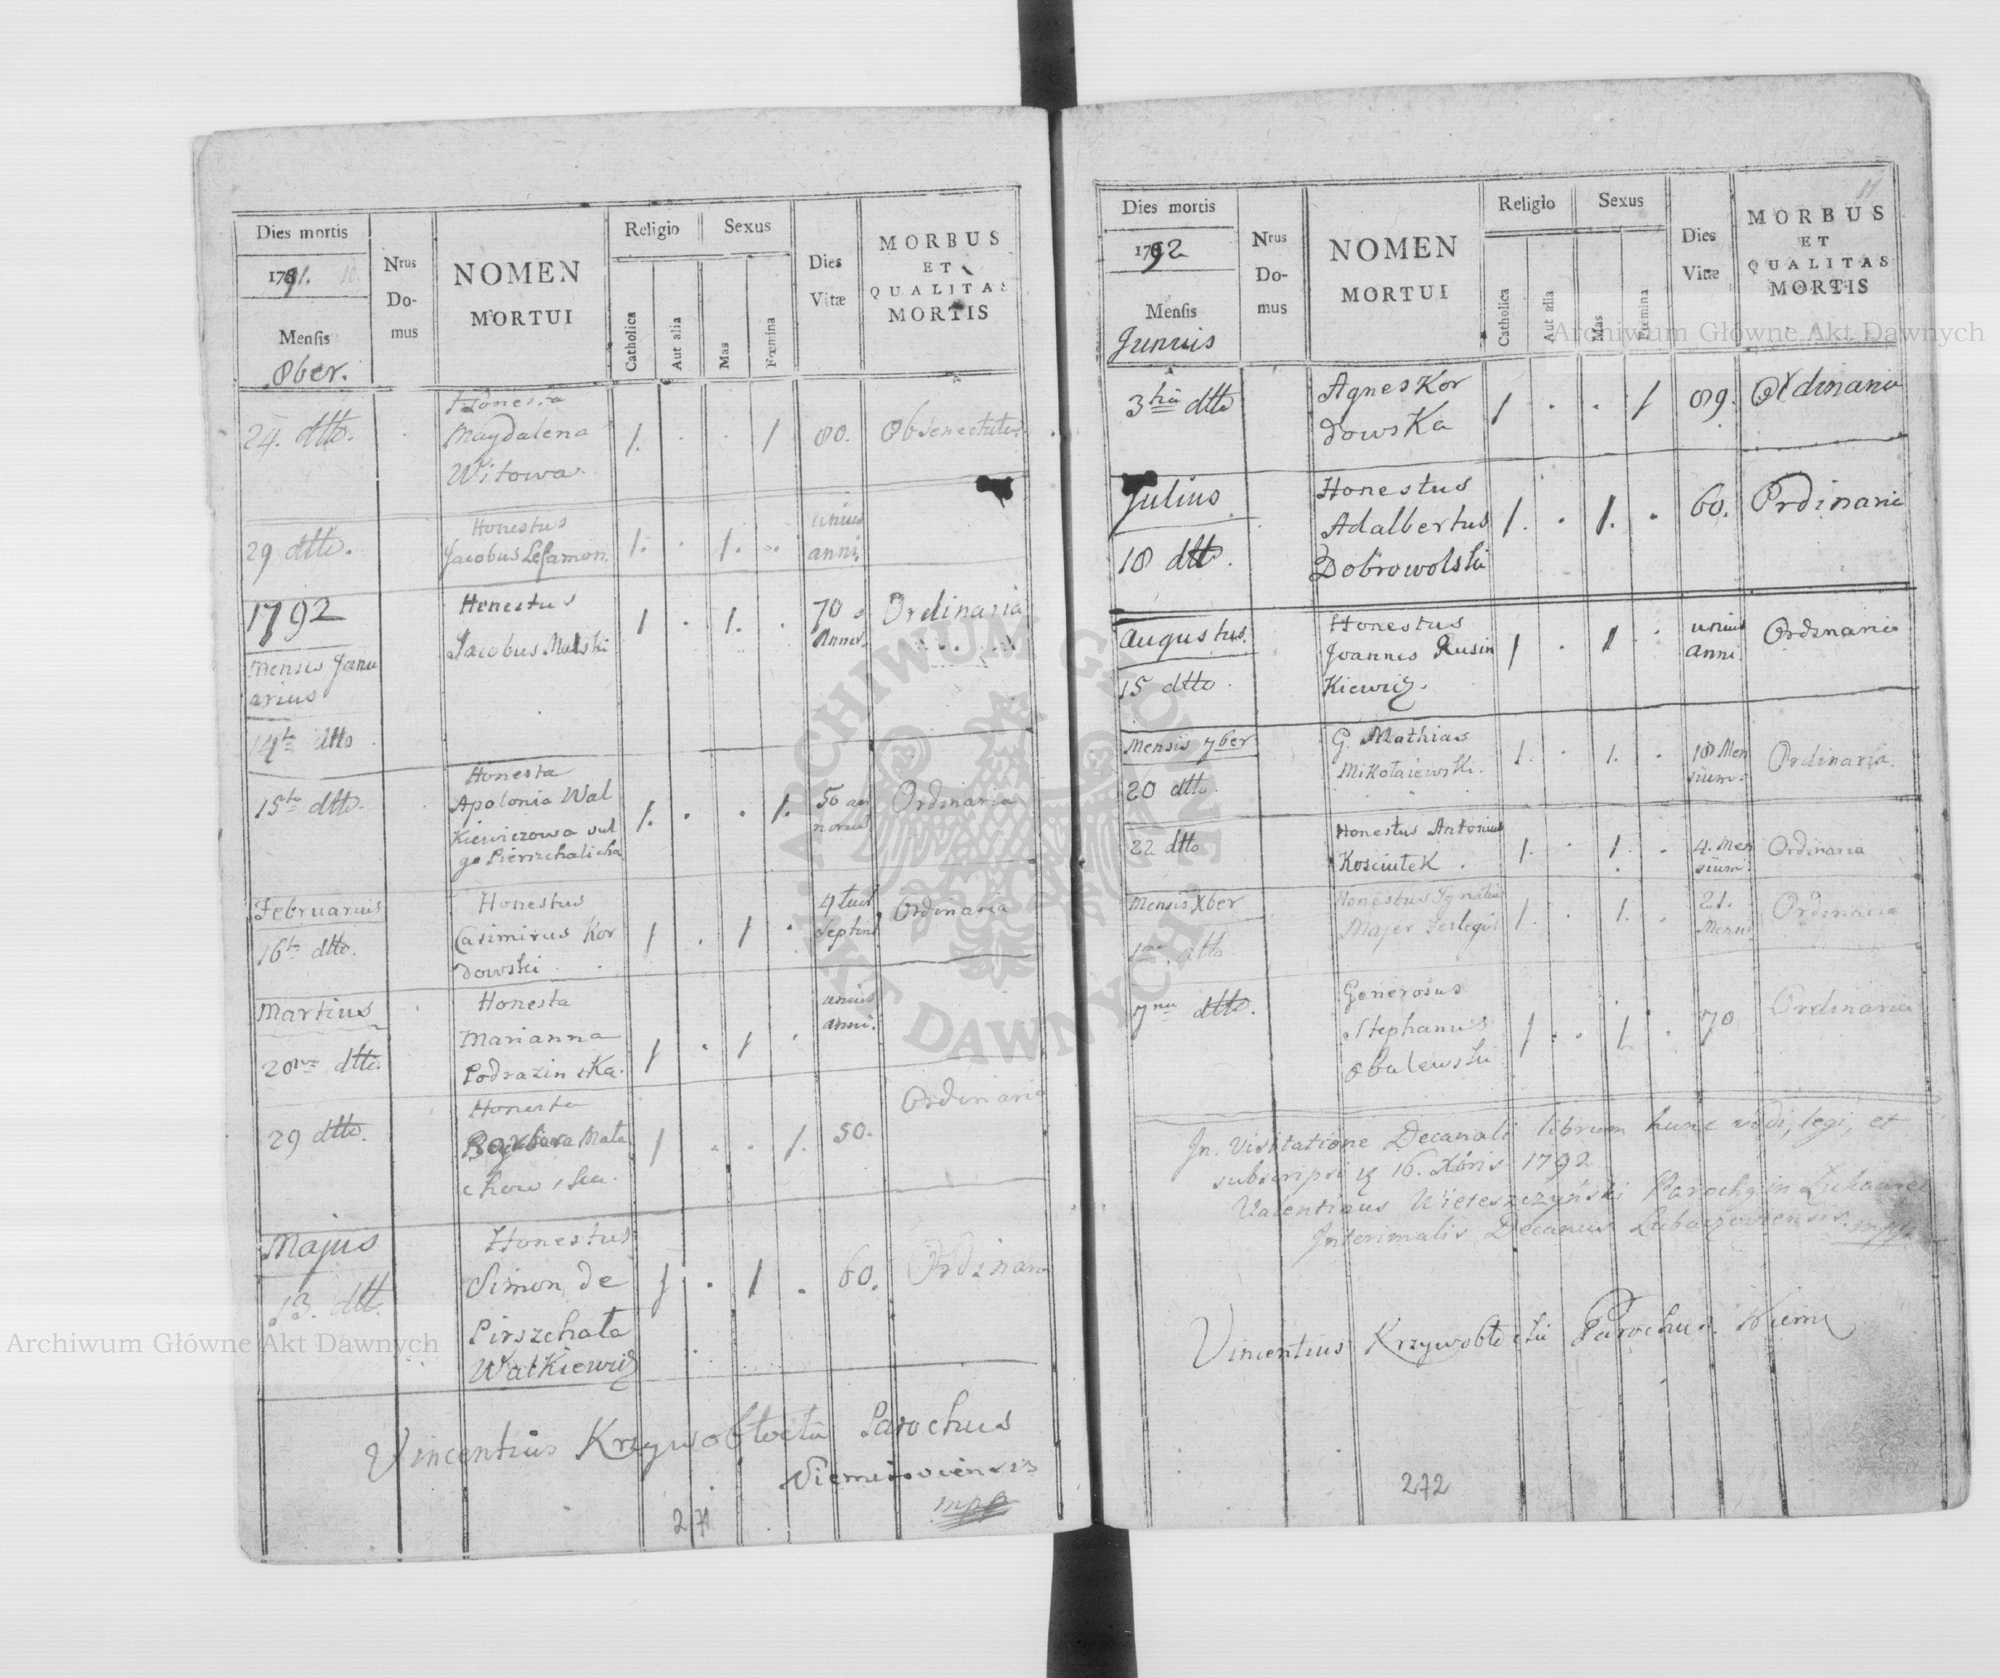 Dies mortis
1791.
Mensis
8ber.
Nrus
Do-
mus
NOMEN
MORTUI
Religio
Catholica
Aut alia
Sexus
Mas
Fœmina
Dies
Vitæ
MORBUS
ET
QUALITAS
MORTIS
24. dtto.
Honesta
Magdalena
Witowa
1. . . 1 80.
29 dtto.
Honestus
Jacobus
1. . 1. .
unius
anni.
1792
Mensis Janu
arius
14ta dtto
Honestus
Jacobus Malski
1 . 1. .
70
Annor.
Ordinaria
15ta dtto.
Honesta
Apolonia Wal
Kiewiczowa vul
go Pierszchalicha
1. . . 1.
50 an
norum
Ordinaria
Februarius
16ta dtto.
Honestus
Casimirus Kor
dowski
1 . 1 .
4
Septim
Ordinaria
Martius
20ma dtto.
Honesta
Marianna
Podrazinska.
1 . 1 .
unius
anni.
Ordinaria
29 dtto.
Honesta
Barbara Mata
chowska.
1 . . 1. 50.
Majus
13. dtt.
Honestus
Simon de
Pirszchała
Wałkiewicz
1 . 1 . 60.
Ordinaria
Vincentius Krzywobłocki Parochus
Niemiroviensis
mpp
271
Dies mortis
1792
Mensis
Junius
Nrus
Do-
mus
NOMEN
MORTUI
Religio
Catholica
Aut alia
Sexus
Mas
Fœmina
Dies
Vitæ
MORBUS
ET
QUALITAS
MORTIS
3tia dtto
Agnes Kor
dowska
1 . . 1 89.
Ordinaria
Julius
18 dtto.
Honestus
Adalbertus
Dobrowolski
1. . 1. . 60.
Ordinaria
Augustus.
15 dtto.
Honestus
Joannes Rusin
Kiewicz.
1 . 1 .
unius
anni.
Ordinaria
Mensis 7ber
20 dtto.
G. Mathias
Mikołaiewski.
1. . 1. .
18 Men
sium.
Ordinaria.
22 dtto
Honestus Antonius
Kosciułek.
1. . 1. .
4. Men
sium.
Ordinaria
Mensis Xber
1ma dtto
Honestus Ignatius
Majer
1. . 1. .
21.
Mensis
Ordinaria
7ma dtto.
Generosus
Stephanus
Obulewski
1 . 1 . 70
Ordinaria
In Visitatione Decanali librum hunc vidi, legi, et
subscripsi 16. Xbris 1792
Valentinus Wieteszczyński Parochg in
Interimalis Decanus Lubaczoviensis. mpp.
Vincentius Krzywobłocki Parochus
272
Archiwum Główne Akt Dawnych
Archiwum Główne Akt Dawnych
ARCHIWUM GŁÓWNE
AKT DAWNYCH